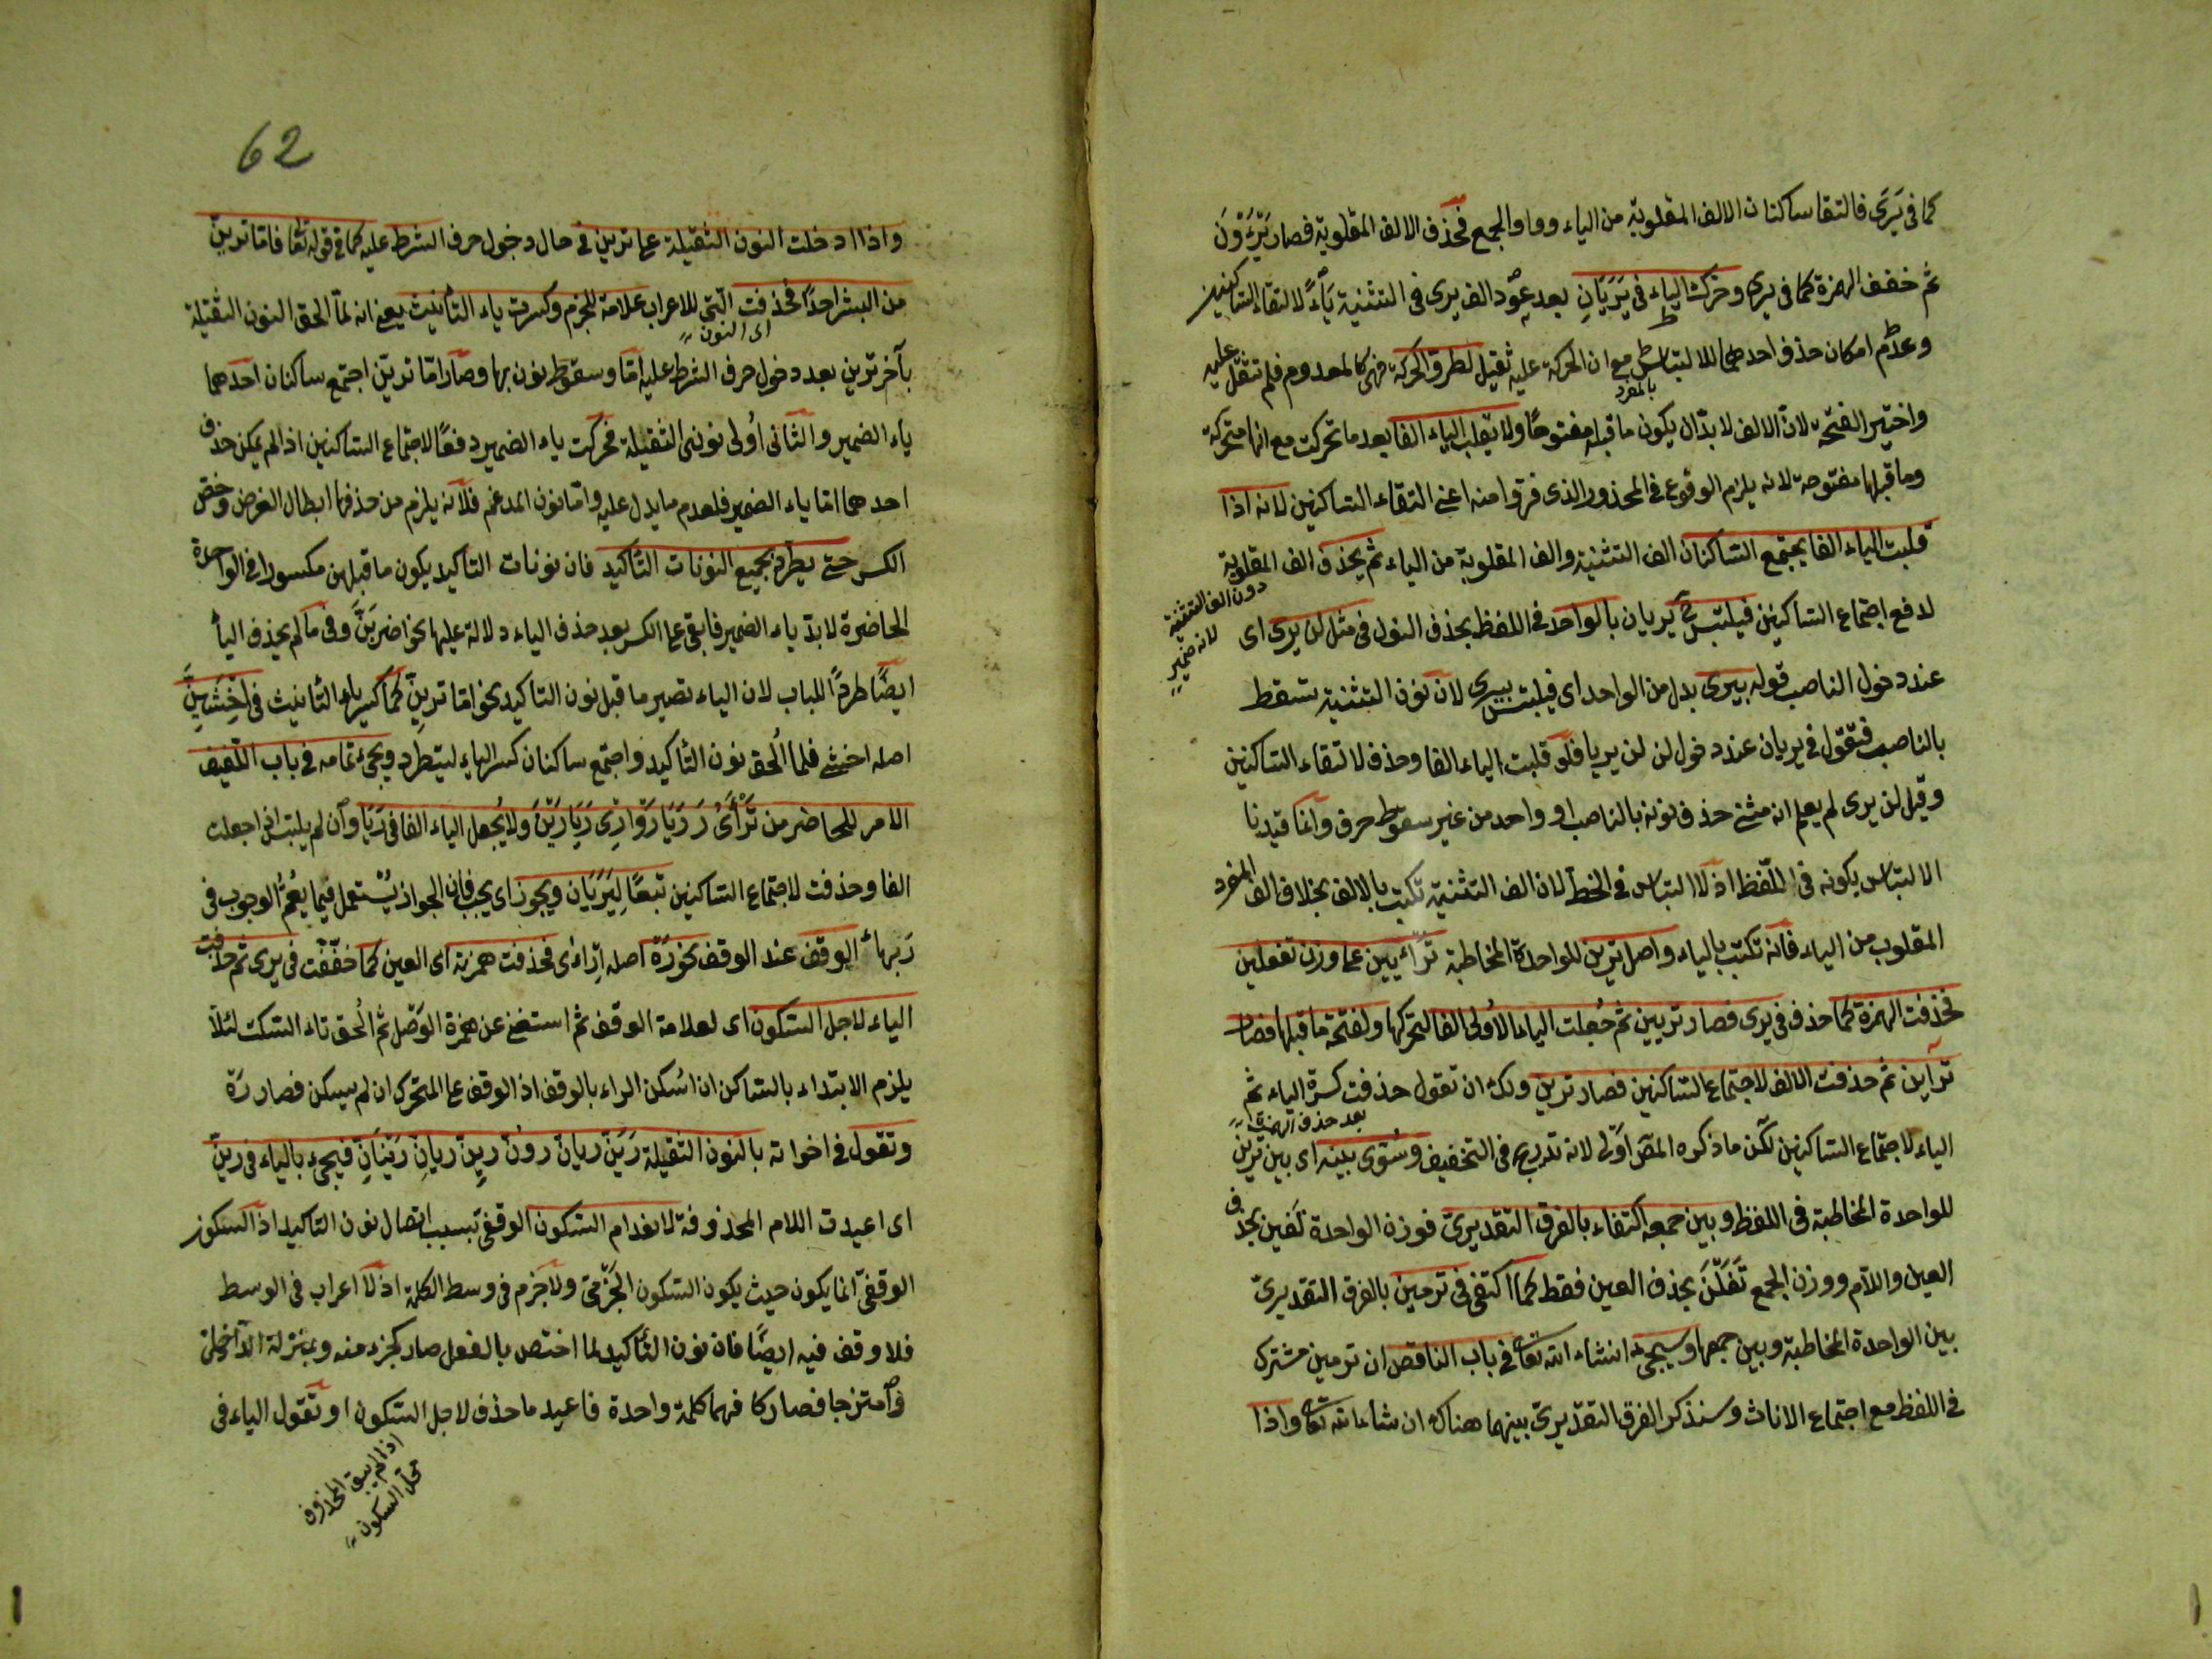 كما فى يَرَى فالتقا ساكنان الالف المقلوبة من الياء وواو الجمع فحذف الالف المقلوبة فصار يَرْءَوْنَ
ثم خفف الهمزة كما فى يرى وحركت الياء فى يَرَيَانِ بعد عود الف يرى فى التثنية ياءً لالتقاء الساكنين
وعدم امكان حذف احدهما للالتباس مع ان الحركة عليه ثقيل لطرو الحركة فهى كالمعدوم فلم تثقل عليه
بالمفرد
واختير الفتحة لان الالف لا بد ان يكون ما قبله مفتوحًا ولا يقلب الياء الفا بعد ما تحركت مع انها متحركة
وما قبلها مفتوحة لانه يلزم الوقوع فى المحذور الذى فروا منه اعنى التقاء الساكنين لانه اذا
قلبت الياء الفا يجتمع الساكنان الف التثنية والف المقلوبة من الياء ثم يحذف الف المقلوبة
دون الف التثنية لانه ضمير
لدفع اجتماع الساكنين فيلتبس يريان بالواحد فى اللفظ بحذف النون فى مثل لن يرى اى
عند دخول الناصب قوله بيرى بدل من الواحد اى فيلتبس بيرى لان نون التثنية تسقط
بالناصب فتقول فى يريان عند دخول لن لن يريا فلو قلبت الياء الفا وحذف لالتقاء الساكنين
وقيل لن يرى لم يعلم انه مثنى حذف نونه بالناصب او واحد من غير سقوط حرف وانما قيدنا
الالتباس بكونه فى اللفظ اذ لا التباس فى الخط لان الف التثنية تكتب بالالف بخلاف الف المفرد
المقلوب من الياء فانه تكتب بالياء واصل ترين للواحدة المخاطبة ترأيين على وزن تفعلين
فحذفت الهمزة كما حذف فى يرى فصار تريين ثم جُعلت الياء الاولى الفا لتحركها ولفتحة ما قبلها فصار
تراين ثم حذفت الالف لاجتماع الساكنين فصار ترين ولك ان تقول حذفت كسرة الياء ثم
بعد حذف الهمزة
الياء لاجتماع الساكنين لكن ما ذكره المص اولى لانه تدريج فى التخفيف وسُوّى بينه اى بين ترين
للواحدة المخاطبة فى اللفظ وبين جمعه اكتفاء بالفرق التقديرى فوزن الواحدة تَفَين بحذف
العين واللام ووزن الجمع تَفَلْنَ بحذف العين فقط كما اكتفى فى ترمين بالفرق التقديرى
بين الواحدة المخاطبة وبين جمعها وسيجىء انشاء الله تعالى فى باب الناقص ان ترمين مشترك
فى اللفظ مع اجتماع الاناث وسنذكر الفرق التقديرى بينهما هناك ان شاء الله تعالى واذا
62
واذا ادخلت النون الثقيلة على ترين فى حال دخول حرف الشرط عليه كما فى قوله تعالى فاما ترين
من البشر احدًا فحذفت التى للاعراب علامة للجزم وكسرت ياء التأنيث يعنى انه لما الحق النون الثقيلة
اى النون
بآخر ترين بعد دخول حرف الشرط عليه اما وسقوط نون بها وصار اما ترين اجتمع ساكنان احدهما
ياء الضمير والثانى اُولى نونى الثقيلة فحركت ياء الضمير دفعًا لاجتماع الساكنين اذ لم يمكن حذف
احدهما اما ياء الضمير فلعدم ما يدل عليه واما نون المدغم فلانه يلزم من حذفها ابطال الغرض وخص
الكسر حتى يطرد بجميع النونات التاكيد فان نونات التاكيد يكون ما قبلهن مكسورا فى الواحدة
الحاضرة لا بد ياء الضمير فابقى على الكسر بعد حذف الياء دلالة عليها نحو اضربَنَّ وفى ما لم يحذف اليا
ايضًا طردًا للباب لان الياء تصير ما قبل نون التاكيد نحو اما ترين كما كسر ياء التأنيث فى اخشَيِنَّ
اصله اخشى فلما اُلحق نون التأكيد واجتمع ساكنان كسر الياء ليطرد ويجىء تمامه فى باب اللفيف
الامر للحاضر من تَرْأى رَ رَيَا رَوْا رَىْ رَيَا رَيْنَ ولا يُجعل الياء الفا فى رَيَا وان لم يلتبس اذ اجعلت
الفا وحذفت لاجتماع الساكنين تبعًا لِيَرَيَانِ ويجوز اى يجب فان الجواز يُستعمل فيما يعُم الوجوب فى
رَ بهاء الوقف عند الوقف نحو رَهْ اصله اِرْاَىْ فحذفت همزته اى العين كما خففت فى يرى ثم حذفت
الياء لاجل السكون اى لعلامة الوقف ثم استغنى عن همزة الوصل ثم اُلحق تاء السكت لئلا
يلزم الابتداء بالساكن ان اسكن الراء بالوقف اذ الوقف على المتحرك ان لم يسكن فصار رَهْ
وتقول فى اخواته بالنون الثقيلة رَيَنَّ ريانّ رونّ رينّ ريانِّ رَيْنَانِّ فيجىء بالياء فى رينّ
اى اعيدت اللام المحذوفة لانعدام السكون الوقفى بسبب اتصال نون التاكيد اذ السكون
الوقفى انما يكون حيث يكون السكون الجزمى ولا جزم فى وسط الكلمة اذ لا اعراب فى الوسط
فلا وقف فيه ايضًا فان نون التأكيد لما اختص بالفعل صار كجزء منه وبمنزلة الداخلى
وامتزجا فصار كا فهما كلمة واحدة فاعيد ما حذف لاجل السكون او تقول الياء فى
اذا لم يبق المحذوف
محل السكون